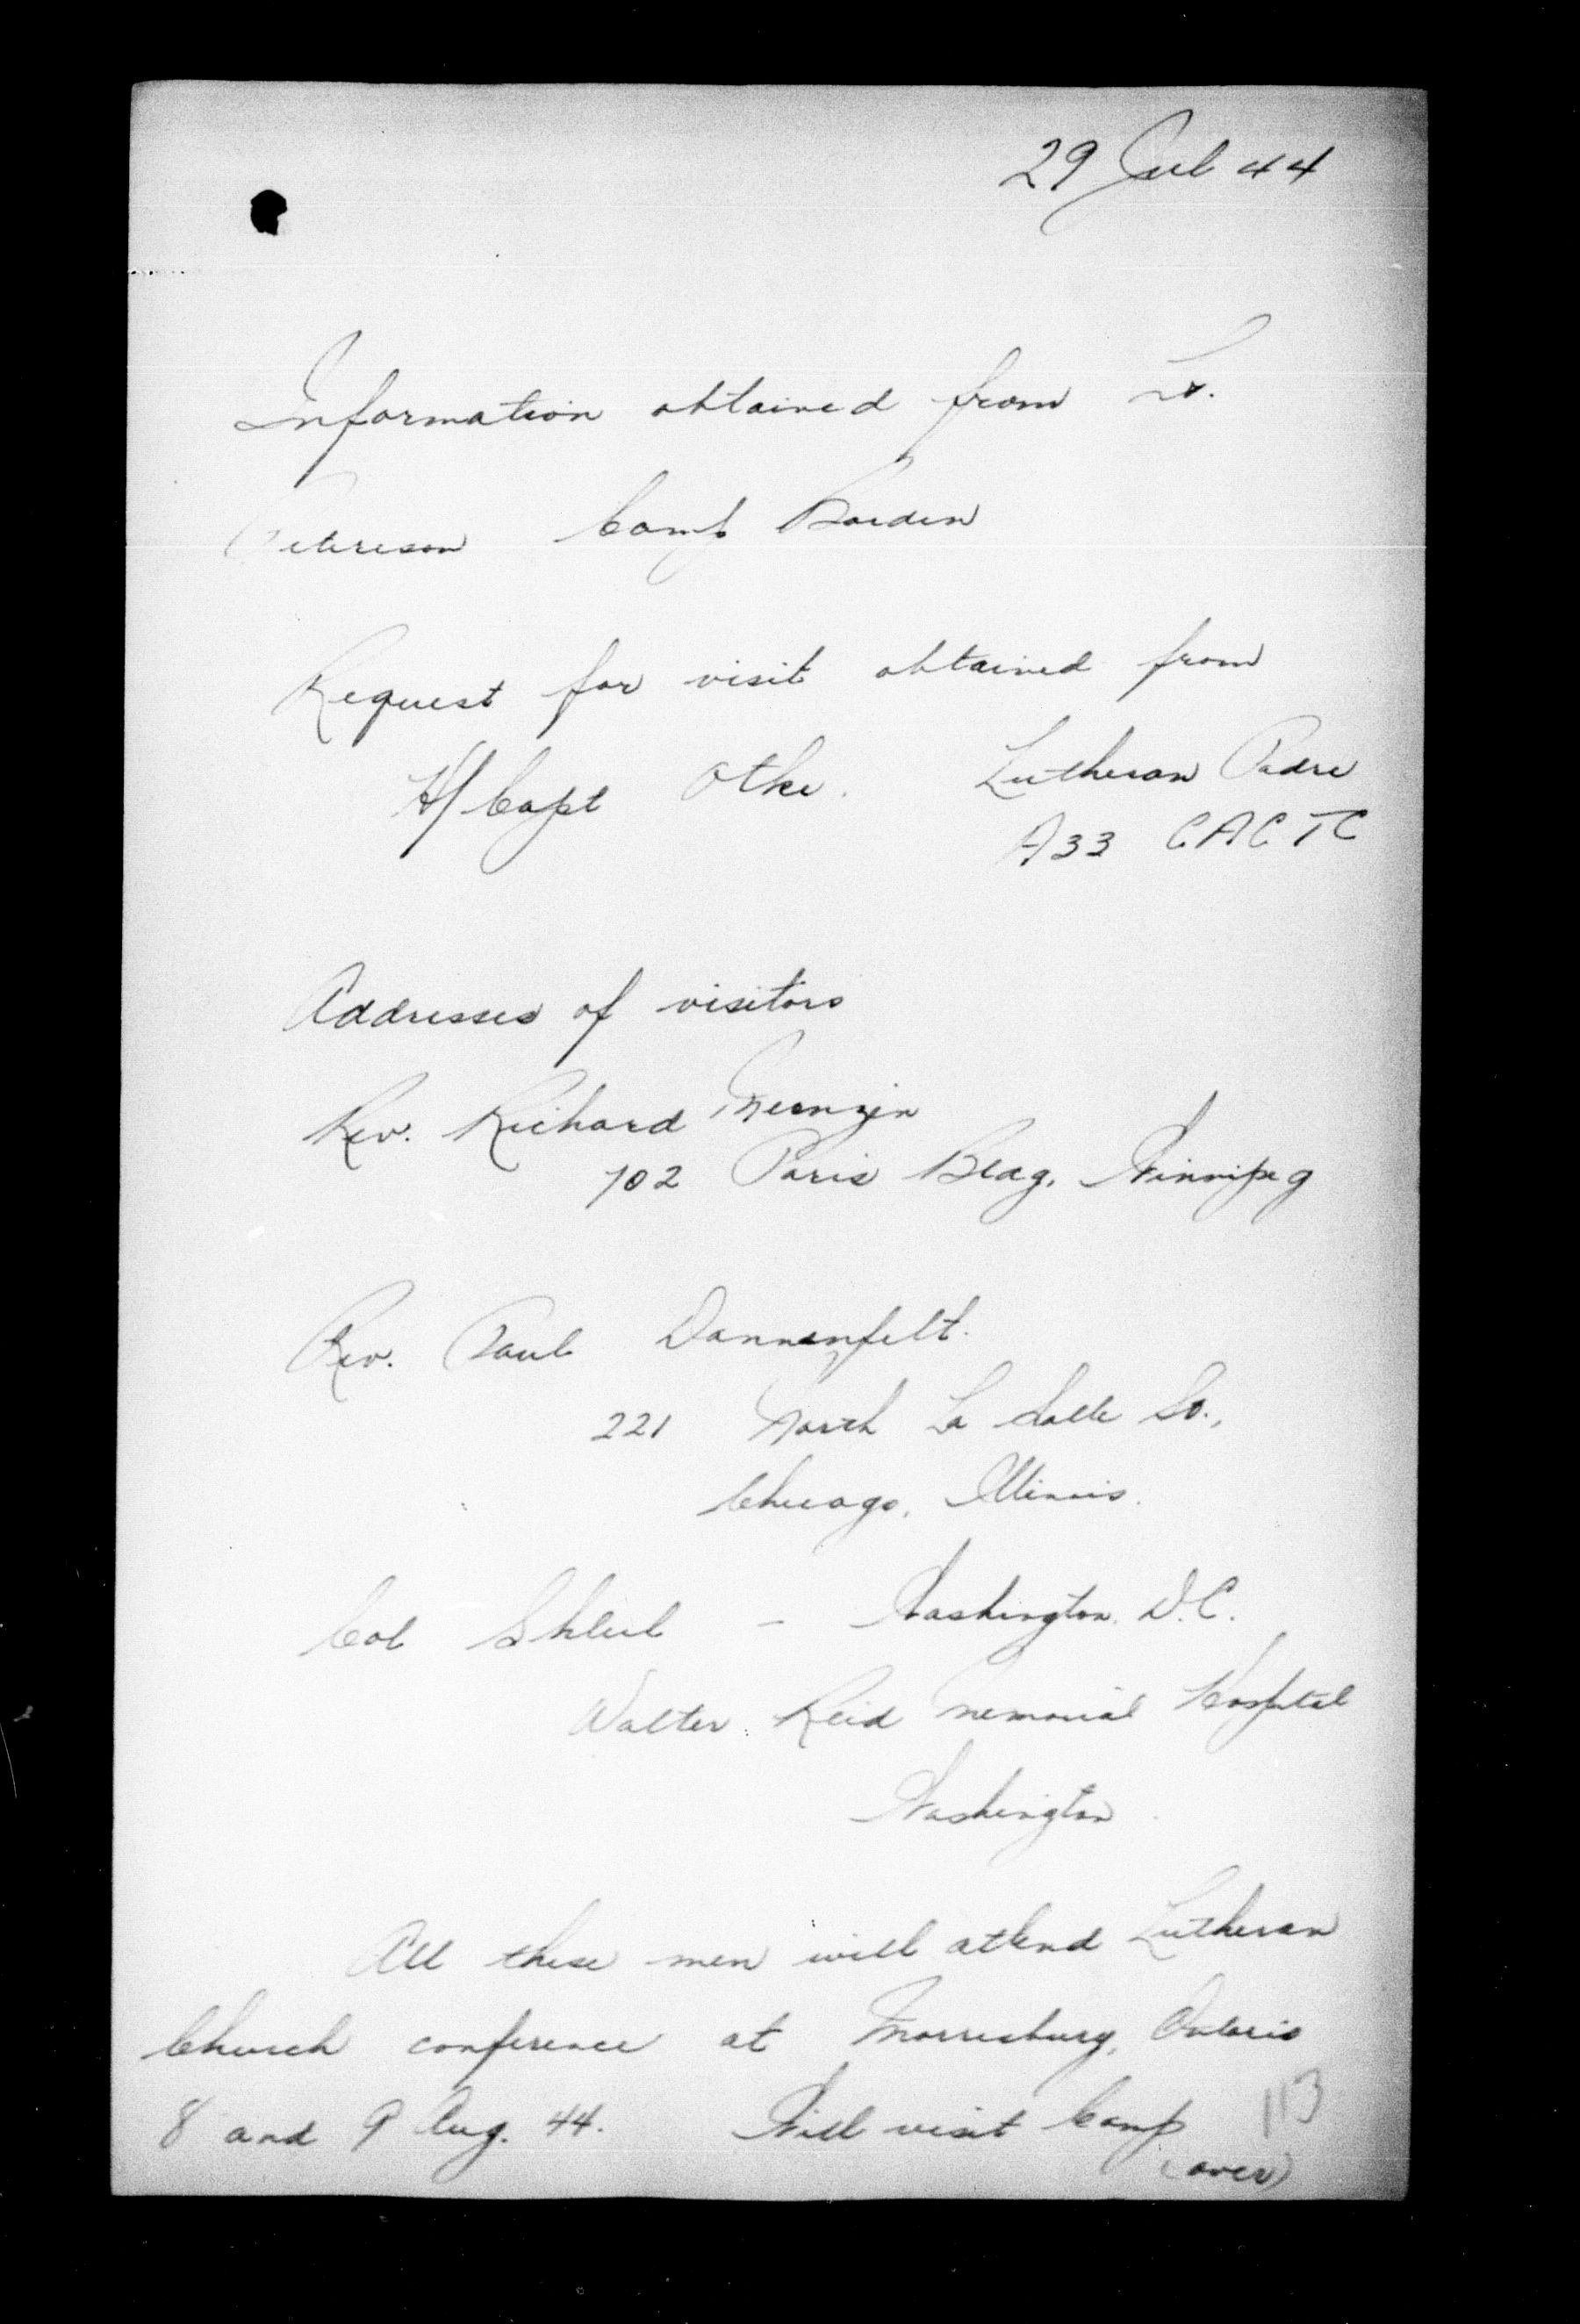 29 Jul 44
Information obtained from Lt.
Peterson Camp Borden
Request for visit obtained from
H/Capt Otke. Lutheran Padre
A33 CACTC
Addresses of visitors
Rev. Richard
702 Paris Bldg. Winnipeg
Rev. Paul Dannenfelt.
221 North La Salle St.,
Chicago, Illinois.
Col - Washington, D.C.
Walter Reid Memorial Hospital
Washington
All these men will attend Lutheran
Church conference at Morrisburg, Ontario
8 and 9 Aug. 44. Will visit Camp
113
(over)